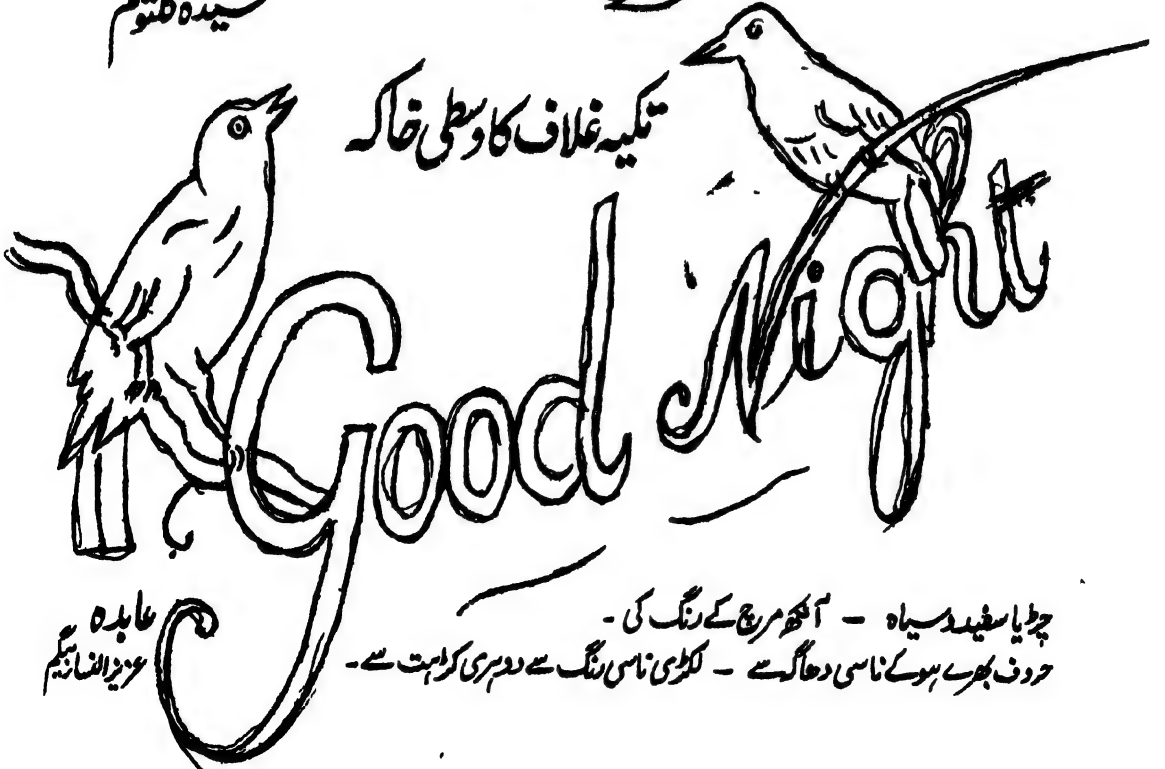 سیدہ
تکیہ غلاف کا وسطی خاکہ
Good Night
چڑیا سفید و سیاہ — آنکھ مرچ کے رنگ کی -
حروف بھرے ہوئے ناسی دھاگے سے — لکڑی ناسی رنگ سے دوہری کڑاہت سے -
عابدہ
عزیز النساء بیگم